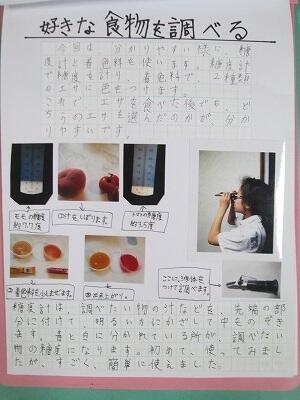 好きな食物を調べる
今回は、分かりやすい様に、糖
度計と着色料を使います。糖度計
で糖度を計り、着色料で、2種類
のエサに色をつけます。
これで、エサを食べた後でも、ど
ちらのエサを選んだのかが、分か
りやすいです。
モモの糖度
約7.7度
①汁をしぼります。
トマトの糖度
約3.5度
②着色料を小しまぜます。
③出来上がり。
ここに、液体を
つけて調べます。
糖度計は、調べたい物の汁などを、先端の部
分に付けて、明るい方にかざして中をのぞき
ます。青と白に分かれている所が、調べたい
物の糖度になります。初めて、使ってみまし
たが、すごく、簡単に使えました。